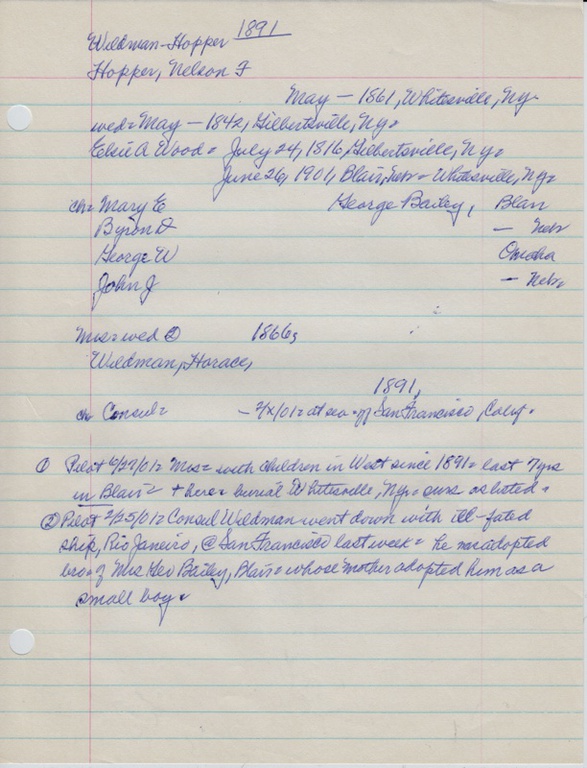 Wildman-Hopper 1891
Hopper, Nelson F
May — 1861, Whitesville, Ny.
wed= May — 1842, Gilbertsville, Ny=
Elsie A Wood = July 24, 1816, Gilbertsville, Ny=
June 26, 1901, Blair, Nebr = Whitesville, Ny=
ch= Mary E George Bailey, Blair
Byron D — Nebr
George W Omaha
John J — Nebr
Mrs= wed ② 1866,
Wildman, Horace,
1891,
ch Consul= - 2/ /01= at sea = off San Francisco, Calif.
① Pilot 6/27/01= Mrs= with children in West since 1891= last 7 yrs
in Blair= + here= burial Whitesville, Ny= surs as listed=
② Pilot 2/25/01= Consul Wildman went down with ill-fated
ship, Rio Janeiro, @ San Francisco last week = he was adopted
bro of Mrs Geo Bailey, Blair= whose mother adopted him as a
small boy.